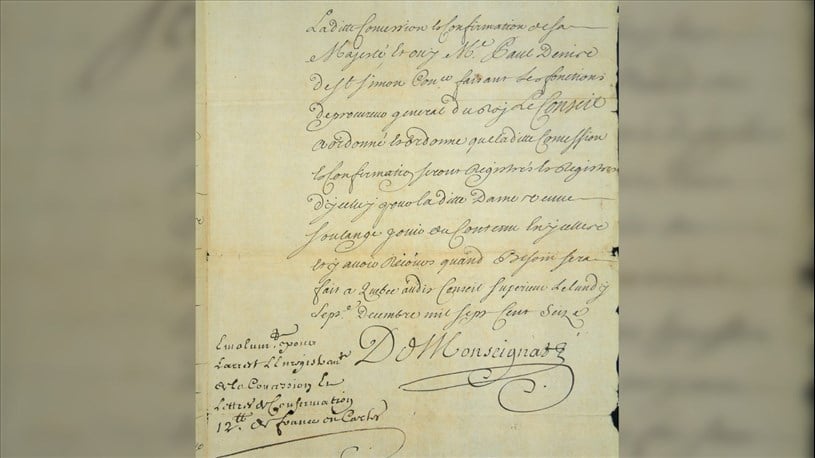 La ditte Concession & Confirmation de sa
Majesté & ouy Mr. Paul Denise
de St Simon Con.er faisant les fonctions
de procureur general du Roy Le Conseil
a ordonné & ordonne que la ditte Concession
& Confirmation seront Registrés es Registres
d'iceluy pour la ditte Dame veuve
soulange jouir du Contenu en icelles
& y avoir Recours quand Besoin sera
fait a Quebec audit Conseil Superieur Le lundy
Sept.e decembre mil sept Cent Seize
Emolum.ts pour
L'arrest L'Enregistrem.t
de la Concession &
Lettres de Confirmation
12.tt de france en Cartes
D d Monseignat